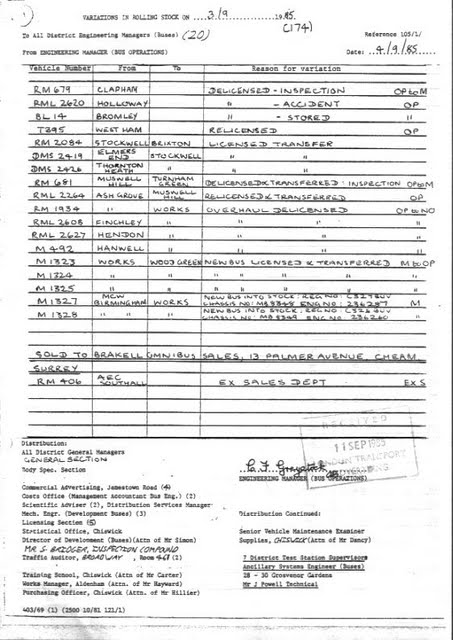 VARIATIONS IN ROLLING STOCK ON 3/9 1985
(174)
To All District Engineering Managers (Buses) (20) Reference 105/1/
From ENGINEERING MANAGER (BUS OPERATIONS) Date: 4/9/85
Vehicle Number From To Reason for variation
RM 679 CLAPHAM DELICENSED - INSPECTION OP to M
RML 2620 HOLLOWAY " - ACCIDENT OP
BL 14 BROMLEY " - STORED "
T295 WEST HAM RELICENSED OP
RM 2084 STOCKWELL BRIXTON LICENSED TRANSFER
DMS 2419 ELMERS END STOCKWELL " "
DMS 2426 THORNTON HEATH " " "
RM 681 MUSWELL HILL TURNHAM GREEN DELICENSED & TRANSFERRED: INSPECTION OP to M
RML 2264 ASH GROVE MUSWELL HILL RELICENSED & TRANSFERRED OP
RM 1934 " WORKS OVERHAUL DELICENSED OP to NO
RML 2608 FINCHLEY " " " "
RML 2627 HENDON " " " "
M 492 HANWELL " " " "
M 1323 WORKS WOOD GREEN NEW BUS LICENSED & TRANSFERRED M to OP
M 1324 " " " " " "
M 1325 " " " " " "
M 1327 MCW BIRMINGHAM WORKS NEW BUS INTO STOCK: REG NO: C327BUV CHASSIS NO: ENG NO: M
M 1328 " " " NEW BUS INTO STOCK: REG NO: CHASSIS NO: ENG NO: "
SOLD TO BRAKELL OMNIBUS SALES, 13 PALMER AVENUE, CHEAM,
SURREY
RM 406 AEC SOUTHALL EX SALES DEPT EX S
RECEIVED
11 SEP 1985
LONDON TRANSPORT
Distribution:
All District General Managers
GENERAL SECTION
Body Spec. Section
ENGINEERING MANAGER (BUS OPERATIONS)
Commercial Advertising, Jamestown Road (4)
Costs Office (Management Accountant Bus Eng.) (2)
Scientific Adviser (2), Distribution Services Manager
Mech. Engr. (Development Buses) (3) Distribution Continued:
Licensing Section (5)
Statistical Office, Chiswick Senior Vehicle Maintenance Examiner
Director of Development (Buses)(Attn of Mr Simon) Supplies, CHISWICK (Attn of Mr Dancy)
MR S. BRIDGER, INSPECTION COMPOUND
Traffic Auditor, BROADWAY, Room (2) 7 District Test Station Supervisors
Ancillary Systems Engineer (Buses)
Training School, Chiswick (Attn of Mr Carter) 28 - 30 Grosvenor Gardens
Works Manager, Aldenham (Attn of Mr Hayward) Mr J Powell Technical
Purchasing Officer, Chiswick (Attn. of Mr Hillier)
403/69 (1) (2500 10/81 121/1)